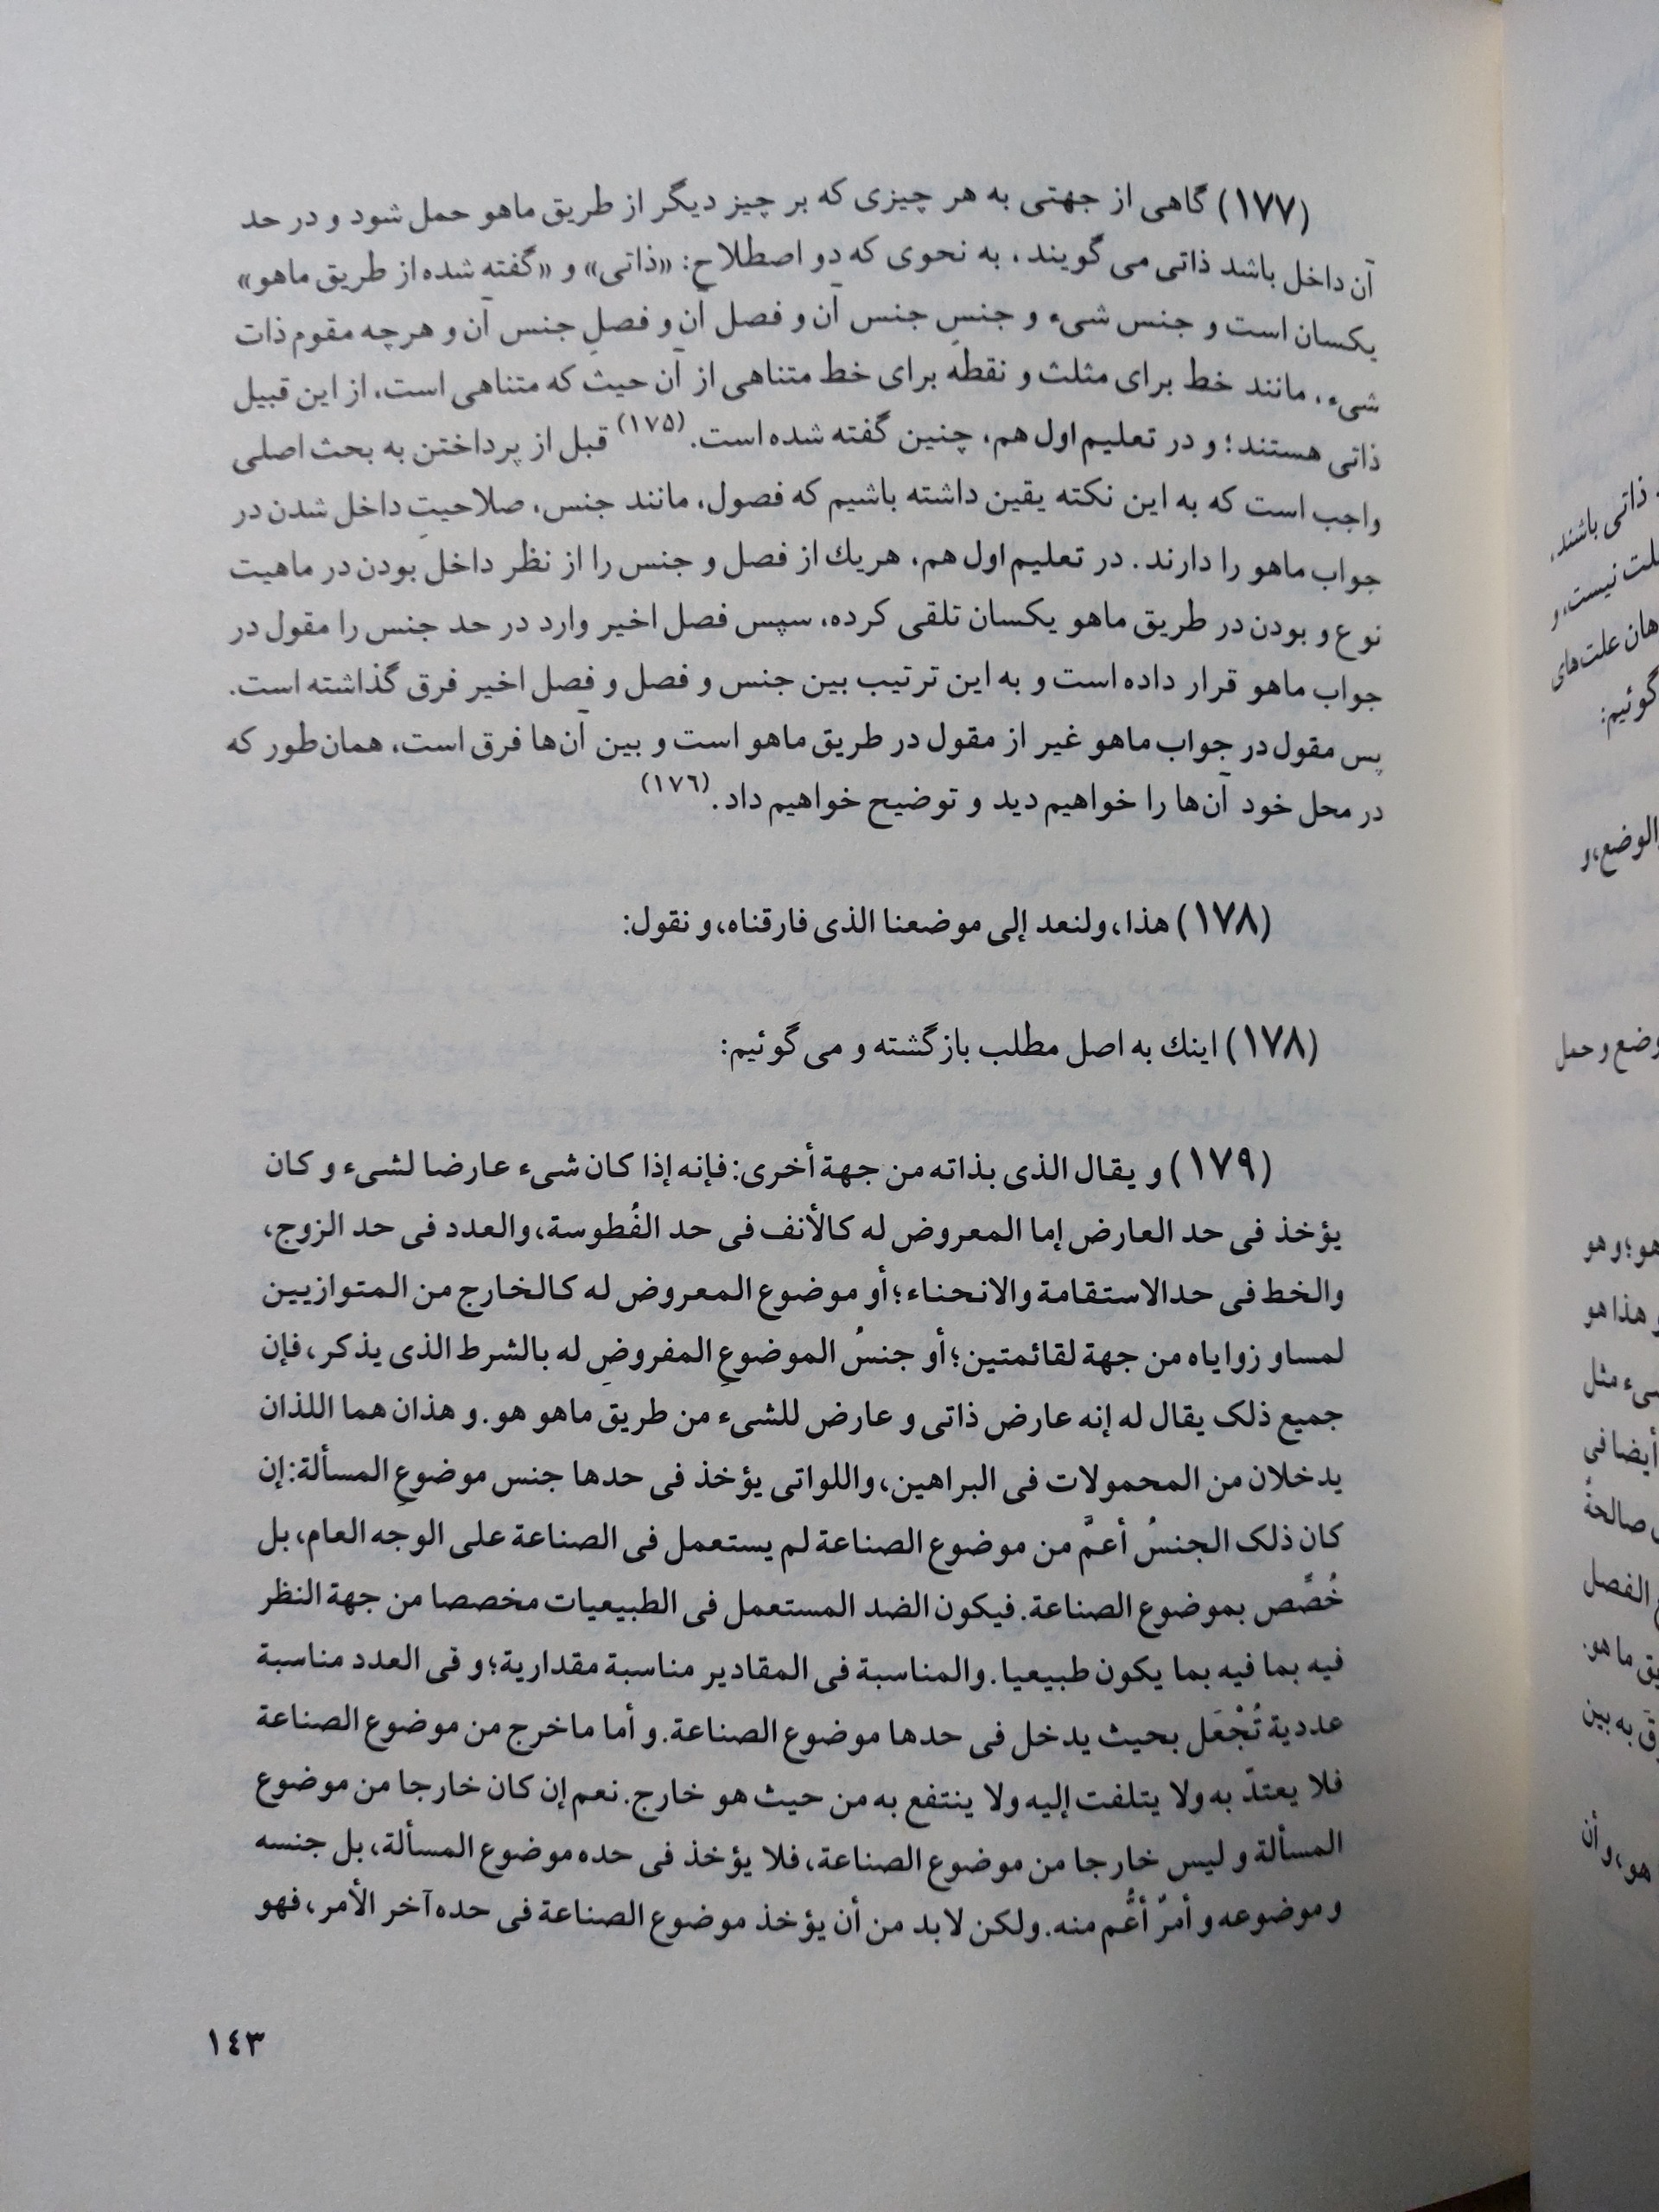 (۱۷۷) گاهی از جهتی به هر چیزی که بر چیز دیگر از طریق ماهو حمل شود و در حد
آن داخل باشد ذاتی می گویند، به نحوی که دو اصطلاح: «ذاتی» و «گفته شده از طریق ماهو»
یکسان است و جنس شیء و جنسِ جنس آن و فصل آن و فصلِ جنس آن و هرچه مقوم ذات
شیء، مانند خط برای مثلث و نقطه برای خط متناهی از آن حیث که متناهی است، از این قبیل
ذاتی هستند؛ و در تعلیم اول هم، چنین گفته شده است.(۱۷۵) قبل از پرداختن به بحث اصلی
واجب است که به این نکته یقین داشته باشیم که فصول، مانند جنس، صلاحیتِ داخل شدن در
جواب ماهو را دارند. در تعلیم اول هم، هریك از فصل و جنس را از نظر داخل بودن در ماهیت
نوع و بودن در طریق ماهو یکسان تلقی کرده، سپس فصل اخیر وارد در حد جنس را مقول در
جواب ماهو قرار داده است و به این ترتیب بین جنس و فصل و فصل اخیر فرق گذاشته است.
پس مقول در جواب ماهو غیر از مقول در طریق ماهو است و بین آن‌ها فرق است، همان‌طور که
در محل خود آن‌ها را خواهیم دید و توضیح خواهیم داد.(۱۷٦)
(۱۷۸) هذا، ولنعد إلی موضعنا الذی فارقناه، و نقول:
(۱۷۸) اینك به اصل مطلب بازگشته و می گوئیم:
(۱۷۹) و یقال الذی بذاته من جهة أخری: فإنه إذا کان شیء عارضا لشیء و کان
یؤخذ فی حد العارض إما المعروض له کالأنف فی حد الفُطوسة، والعدد فی حد الزوج،
والخط فی حدالاستقامة والانحناء؛ أو موضوع المعروض له کالخارج من المتوازیین
لمساو زوایاه من جهة لقائمتین؛ أو جنسُ الموضوعِ المفروضِ له بالشرط الذی یذکر، فإن
جمیع ذلک یقال له إنه عارض ذاتی و عارض للشیء من طریق ماهو هو. و هذان هما اللذان
یدخلان من المحمولات فی البراهین، واللواتی یؤخذ فی حدها جنس موضوعِ المسألة: إن
کان ذلک الجنسُ أعمَّ من موضوع الصناعة لم یستعمل فی الصناعة علی الوجه العام، بل
خُصِّص بموضوع الصناعة. فیکون الضد المستعمل فی الطبیعیات مخصصا من جهة النظر
فیه بما فیه بما یکون طبیعیا. والمناسبة فی المقادیر مناسبة مقداریة؛ و فی العدد مناسبة
عددیة تُجْعَل بحیث یدخل فی حدها موضوع الصناعة. و أما ماخرج من موضوع الصناعة
فلا یعتدّ به ولا یتلفت إلیه ولا ینتفع به من حیث هو خارج. نعم إن کان خارجا من موضوع
المسألة و لیس خارجا من موضوع الصناعة، فلا یؤخذ فی حده موضوع المسألة، بل جنسه
و موضوعه و أمرٌ أعُّم منه. ولکن لابد من أن یؤخذ موضوع الصناعة فی حده آخر الأمر، فهو
١٤٣
ذاتی باشند،
لت نیست، و
هان علت‌های
گوئیم:
الوضع، و
وضع و حمل
هو؛ و هو
و هذا هو
شیء مثل
أیضا فی
صالحة
الفصل
یق ما هو.
ق به بین
هو، و أن